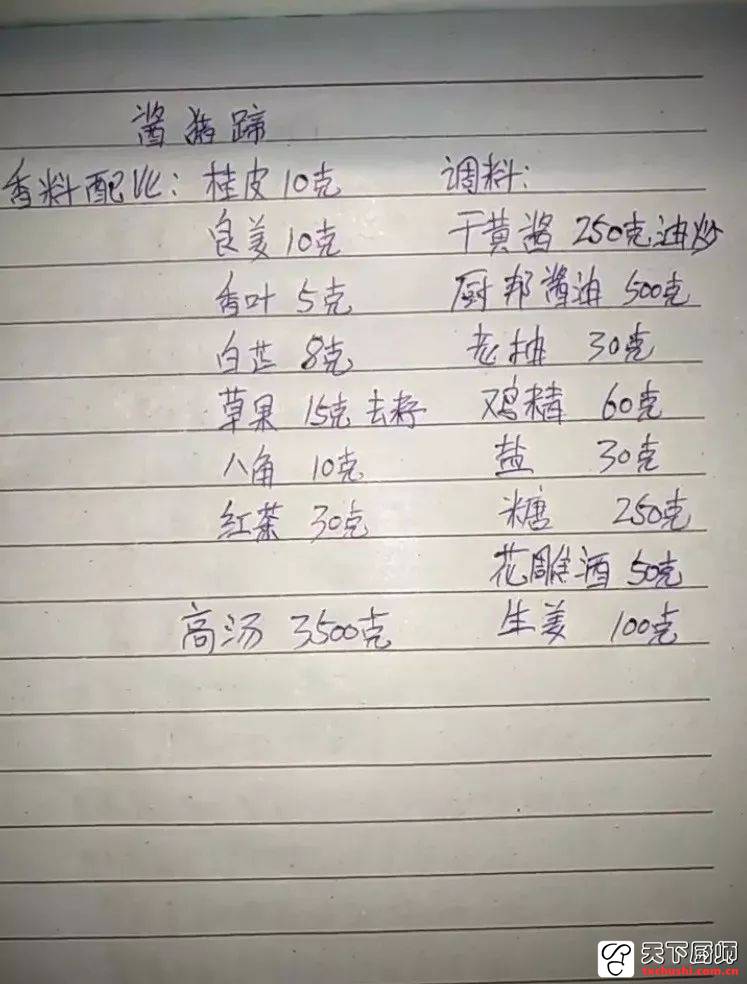 酱猪蹄
香料配比: 桂皮 10克 调料:
良姜 10克 干黄酱 250克 油炒
香叶 5克 厨邦酱油 500克
白芷 8克 老抽 30克
草果 15克 去籽 鸡精 60克
八角 10克 盐 30克
红茶 30克 糖 250克
花雕酒 50克
高汤 3500克 生姜 100克
天下厨师
txchushi.com.cn